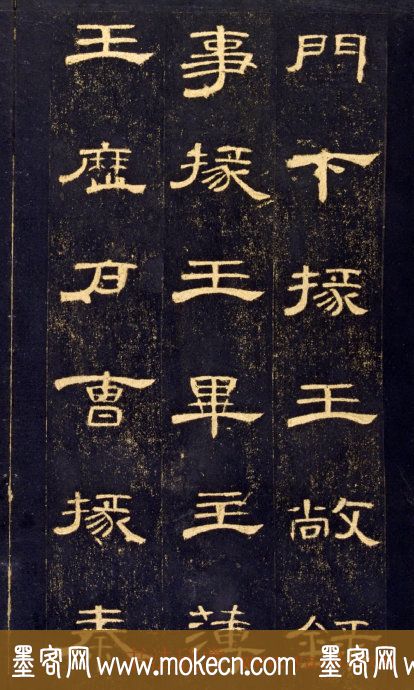 門下掾王敞錄
事掾王畢主薄
王歷戶曹掾秦
墨客网 www.mokecn.com 墨客网 www.